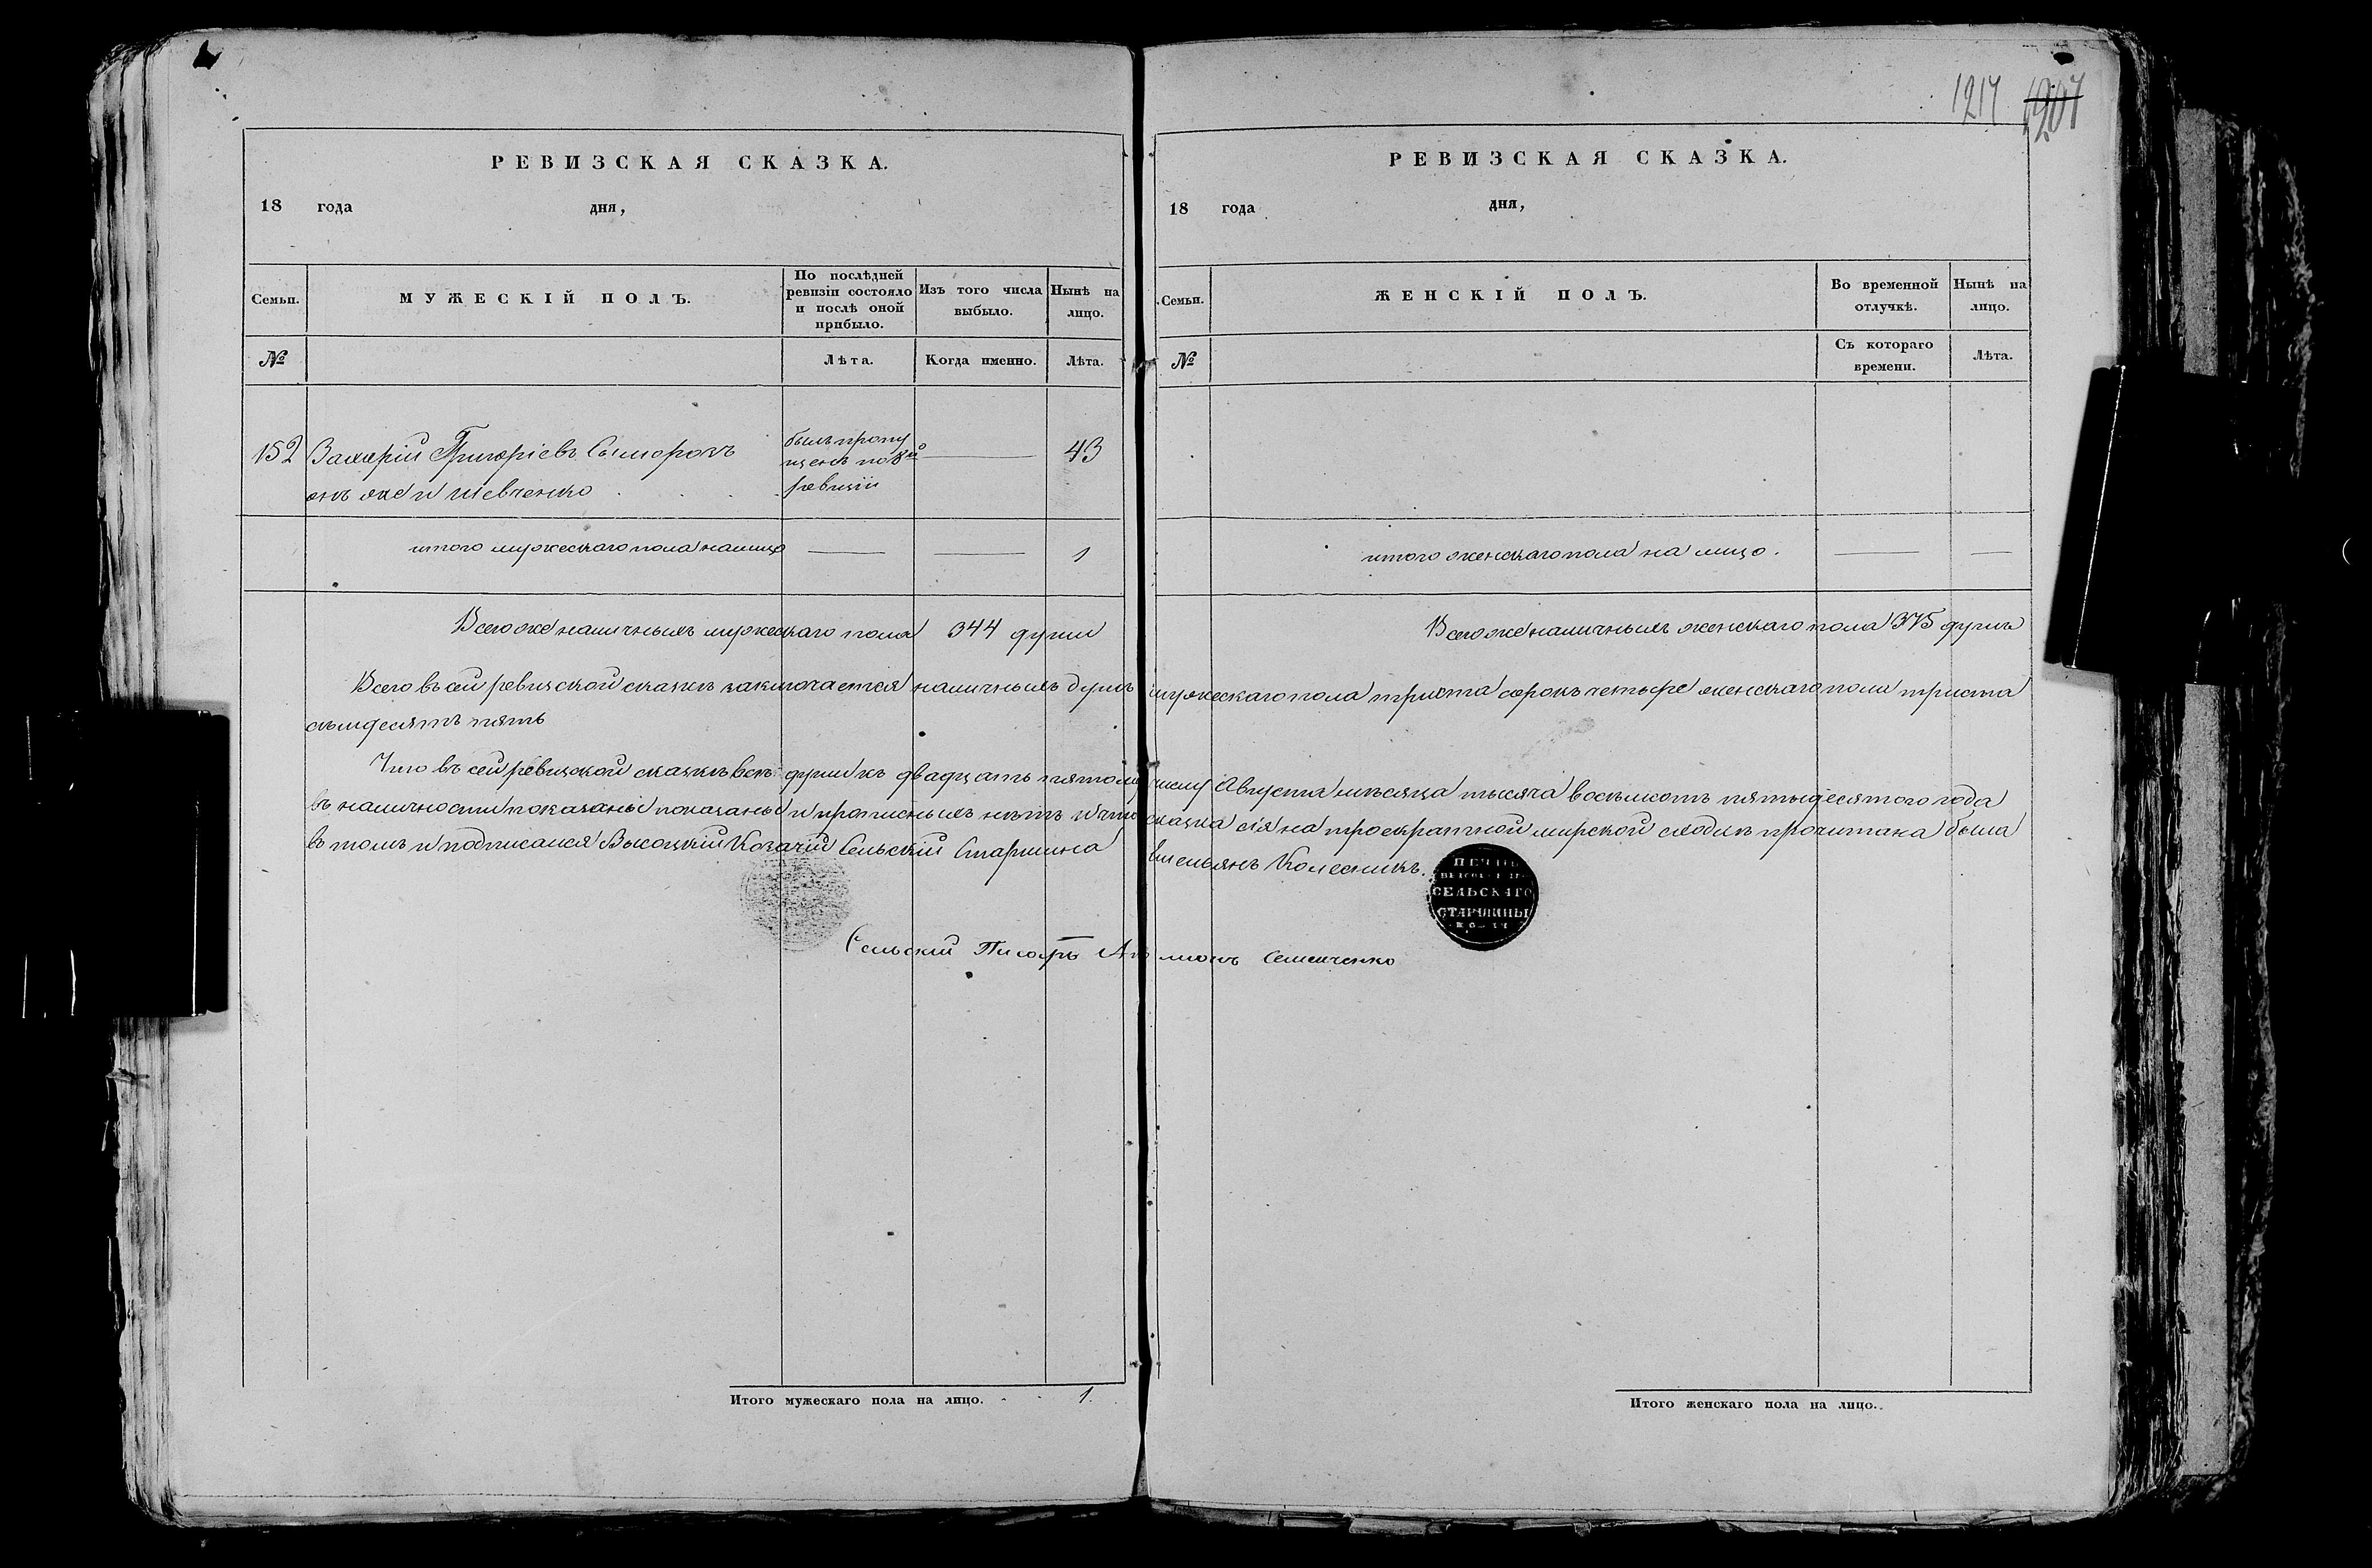 1217 1207
РЕВИЗСКАЯ СКАЗКА.
18 года дня,
Семьи. МУЖЕСКІЙ ПОЛЪ. По послѣдней ревизіи состояло и послѣ оной прибыло. Изъ того числа выбыло. Нынѣ на лицо.
№ Лѣта. Когда именно. Лѣта.
152 Захарій Григоріевъ Сыморотъ былъ пропу 43
онъ же и Шевченко щенъ по 8й
ревизіи
итого мужескаго пола налицо 1
Всего же наличныхъ мужескаго пола 344 души
РЕВИЗСКАЯ СКАЗКА.
18 года дня,
Семьи. ЖЕНСКІЙ ПОЛЪ. Во временной отлучкѣ. Нынѣ на лицо.
№ Съ котораго времени. Лѣта.
итого женскаго пола на лицо.
Всего же наличныхъ женскаго пола 375 душъ
Всего въ сей ревизской сказкѣ заключается наличныхъ душъ мужескаго пола триста сорокъ четыре женскаго пола триста
семдесятъ пять
Что въ сей ревизской сказкѣ всѣ души къ двадцать пятому числу Августа мѣсяца тысяча восемсотъ пятьдесятого года
въ наличности показаны показаны и прописныхъ нѣтъ и что сказка сія на троекратной мирской сходкѣ прочитана была
въ томъ и подписался Высоцкій Козачій Сельскій Старшина Емельянъ Колесникъ.
ПЕЧАТЬ
СЕЛЬСКАГО
СТАРШИНЫ
Сельскій Писарь Семенченко
Итого мужескаго пола на лицо. 1.
Итого женскаго пола на лицо.